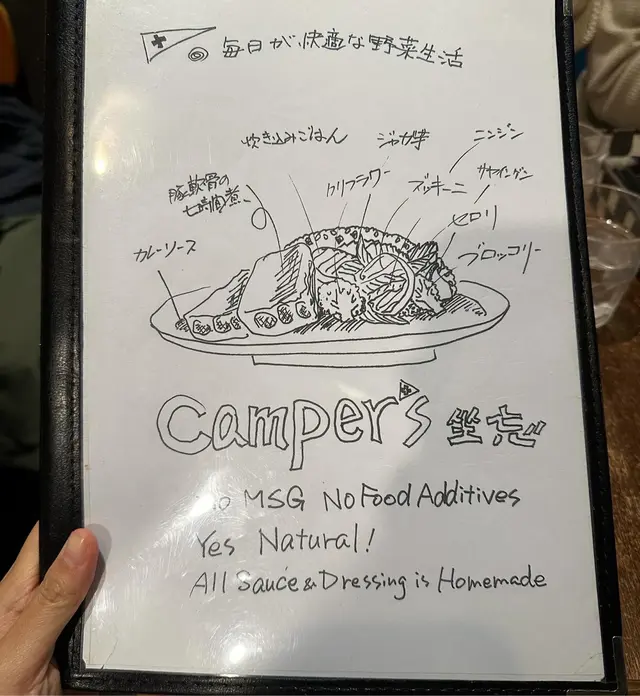 毎日が、快適な野菜生活
炊き込みごはん
ジャガ芋
ニンジン
豚軟骨の
七時間煮
カリフラワー
ズッキーニ
サヤインゲン
セロリ
カレーソース
ブロッコリー
Camper's 坐忘
MSG No Food Additives
Yes Natural!
All Sauce & Dressing is Homemade